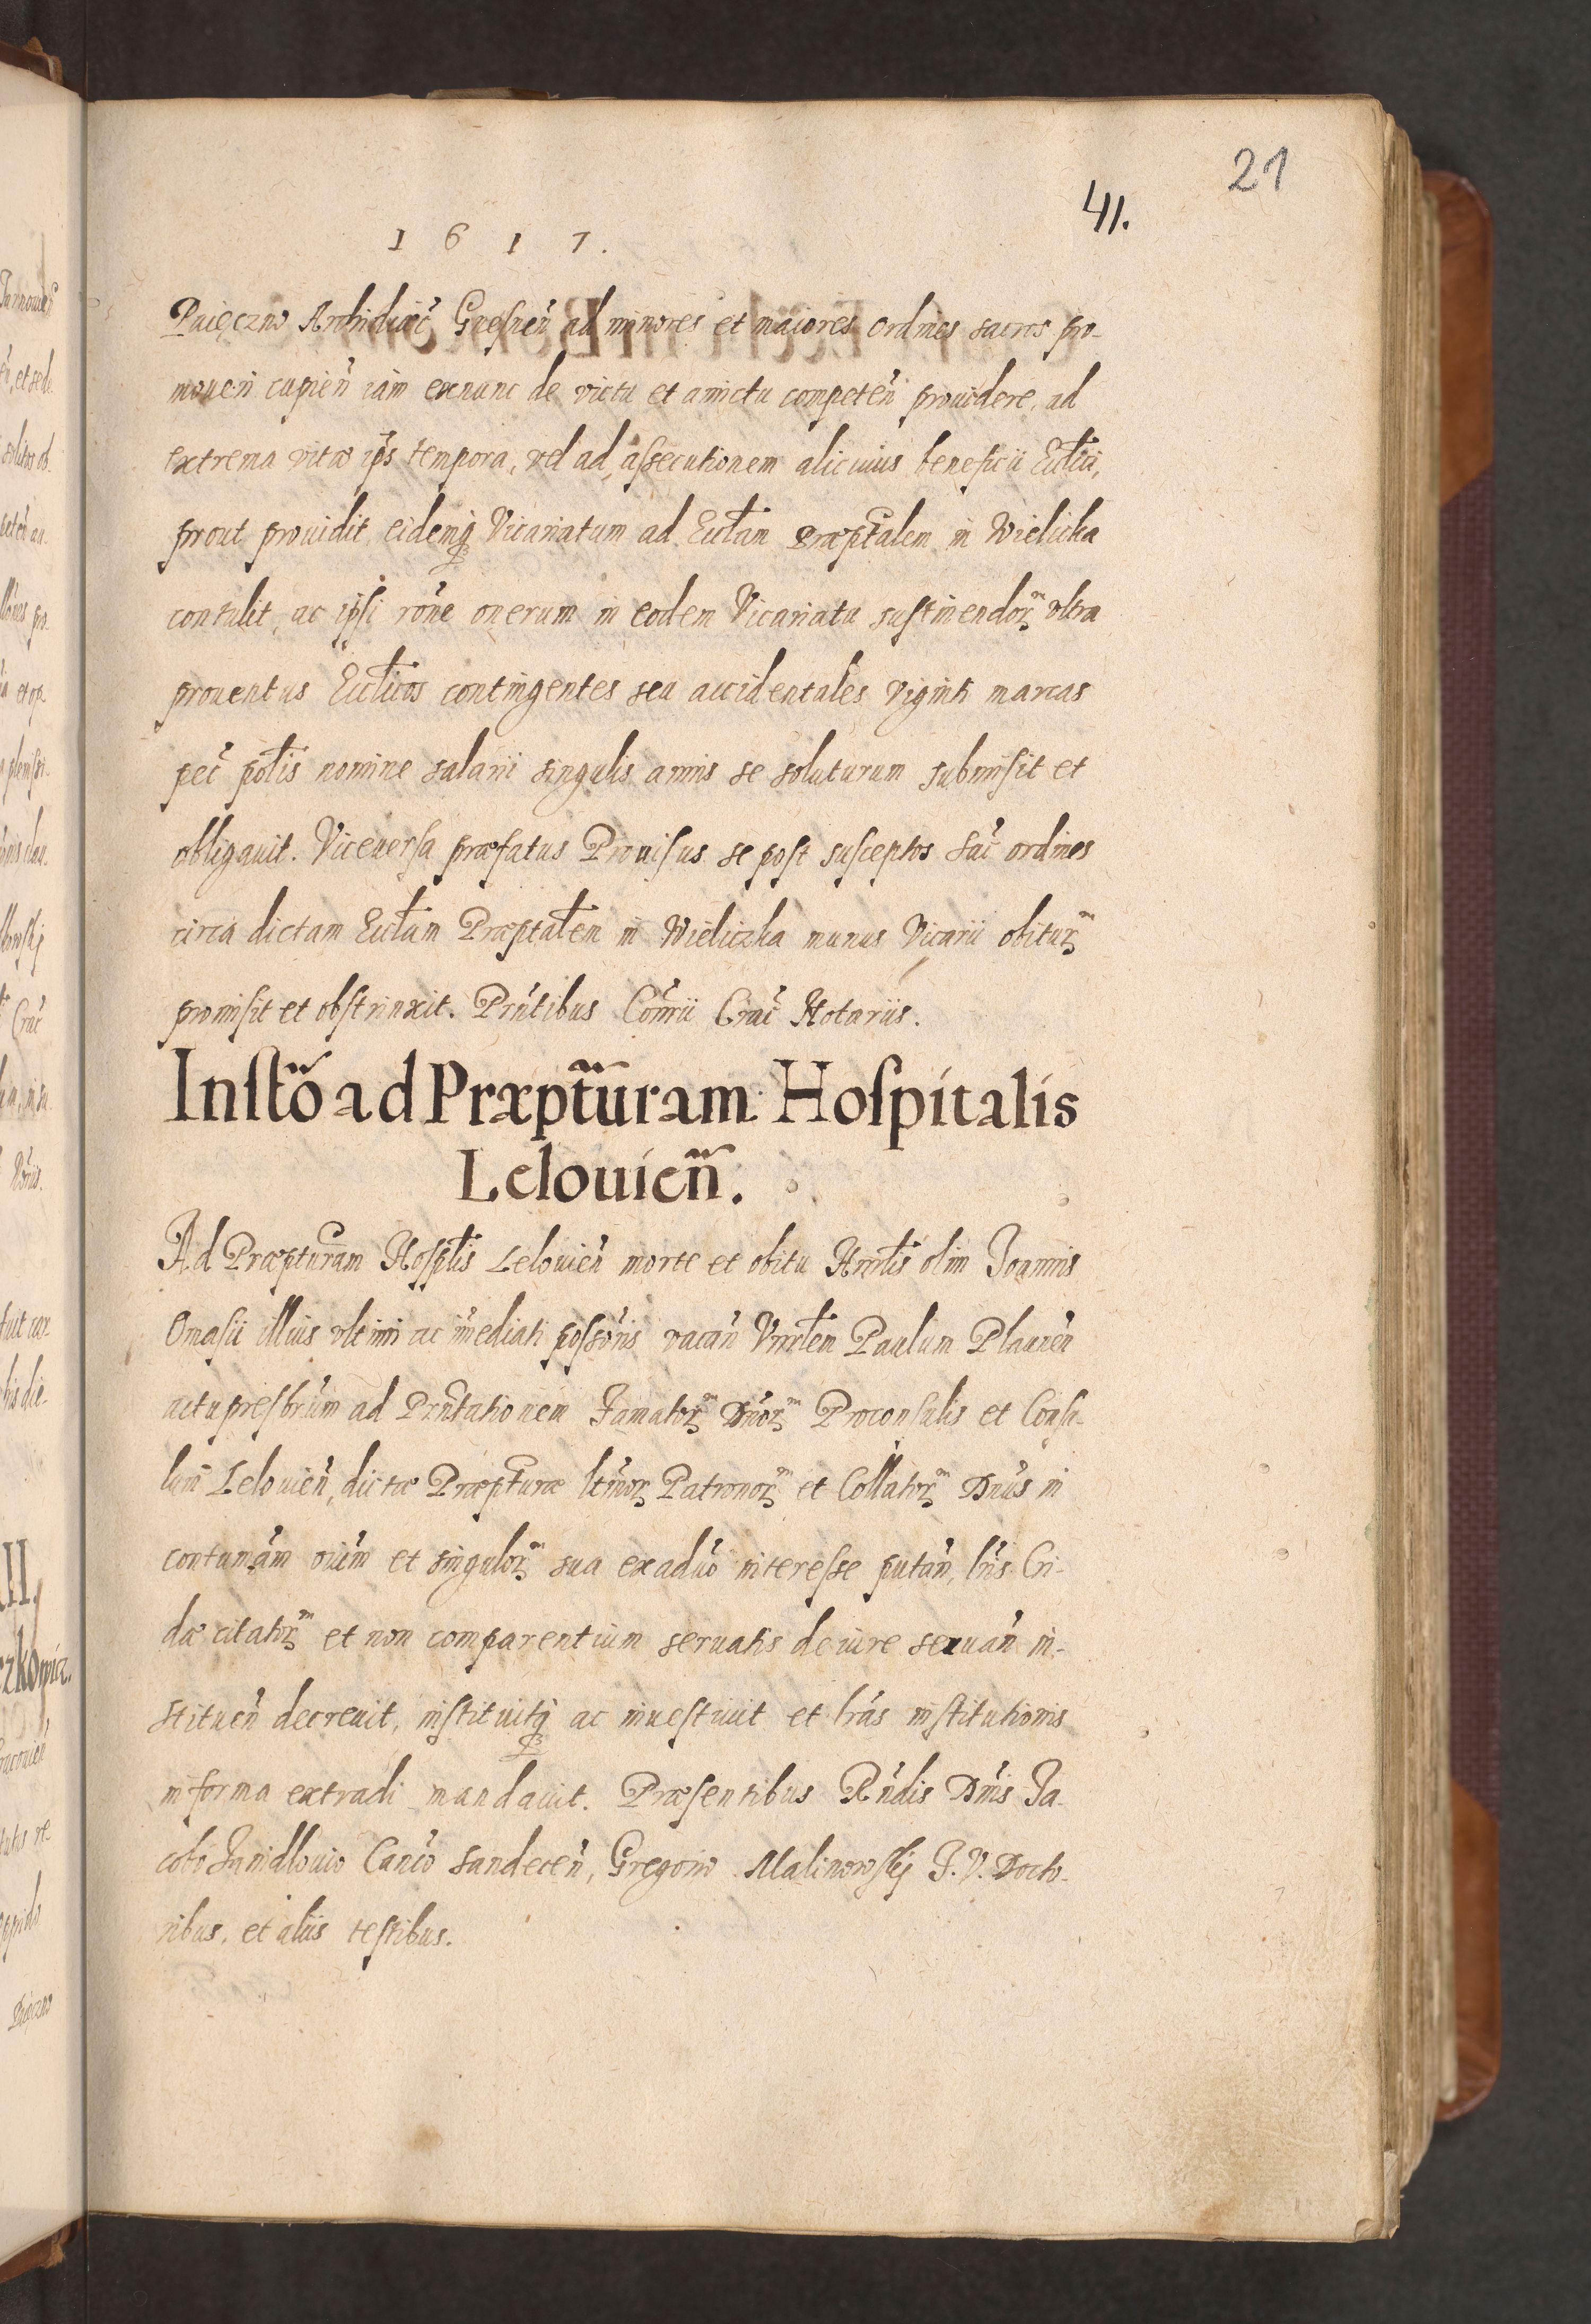 21
41.
1617.
Paięczno Archidiac̃ Gnesneñ ad minores et maiores ordines sacros pro-
moueri cupieñ iam exnunc de victu et amictu competeñ prouidere, ad
extrema vitæ ip̃s tempora, vel ad assecutionem alicuius beneficii Eccl̃ici,
prout prouidit, eidemq Vicariatum ad Eccl̃am Præpt̃alem in Wieliczka
contulit, ac ipsi rõne onerum in eodem Vicariatu sustinendoꝝ vltra
prouentus Eccl̃icos contingentes seu accidentales viginti marcas
pec̃ pol̃is nomine salarii singulis annis se soluturum submisit et
obligauit. Viceuersa præfatus Prouisus se post susceptos sac̃ ordines
circa dictam Eccl̃am Præptal̃em in Wieliczka munus Vicarii obituꝝ
promisit et obstrinxit. Prñtibus Coñrii Crac̃ Notariis.
Instõ ad Præpt̃uram Hospitalis
Louieñ.
Ad Præpturam Hospl̃is Lelouieñ morte et obitu Hñlis olim Joannis
Omasii illius vltimi ac im̃ediati possoris̃ vacañ Vñrlem Paulum Plaueñ
actu presbrũm ad Prñtationem Famatoꝝ Dñoꝝ Proconsulis et Consu-
lum̃ Leloueñ, dictæ Præpturæ ltm̃oꝝ Patronoꝝ et Collatoꝝ Dnũs in
contumãm oiũm et singuloꝝ sua exaduõ interesse putañ, lrĩs Cri-
dæ citatoꝝ et non comparentium seruatis de iure seruañ in-
stitueñ decreuit, instituitq ac inuestiuit et lrãs institutionis
in forma extradi mandauit. Præsentibus Rñdis Dñis Ja-
cobo Janidlouio Canco̓ Sandeceñ, Gregorio Malinowskj J. V. Docto-
ribus, et aliis testibus.